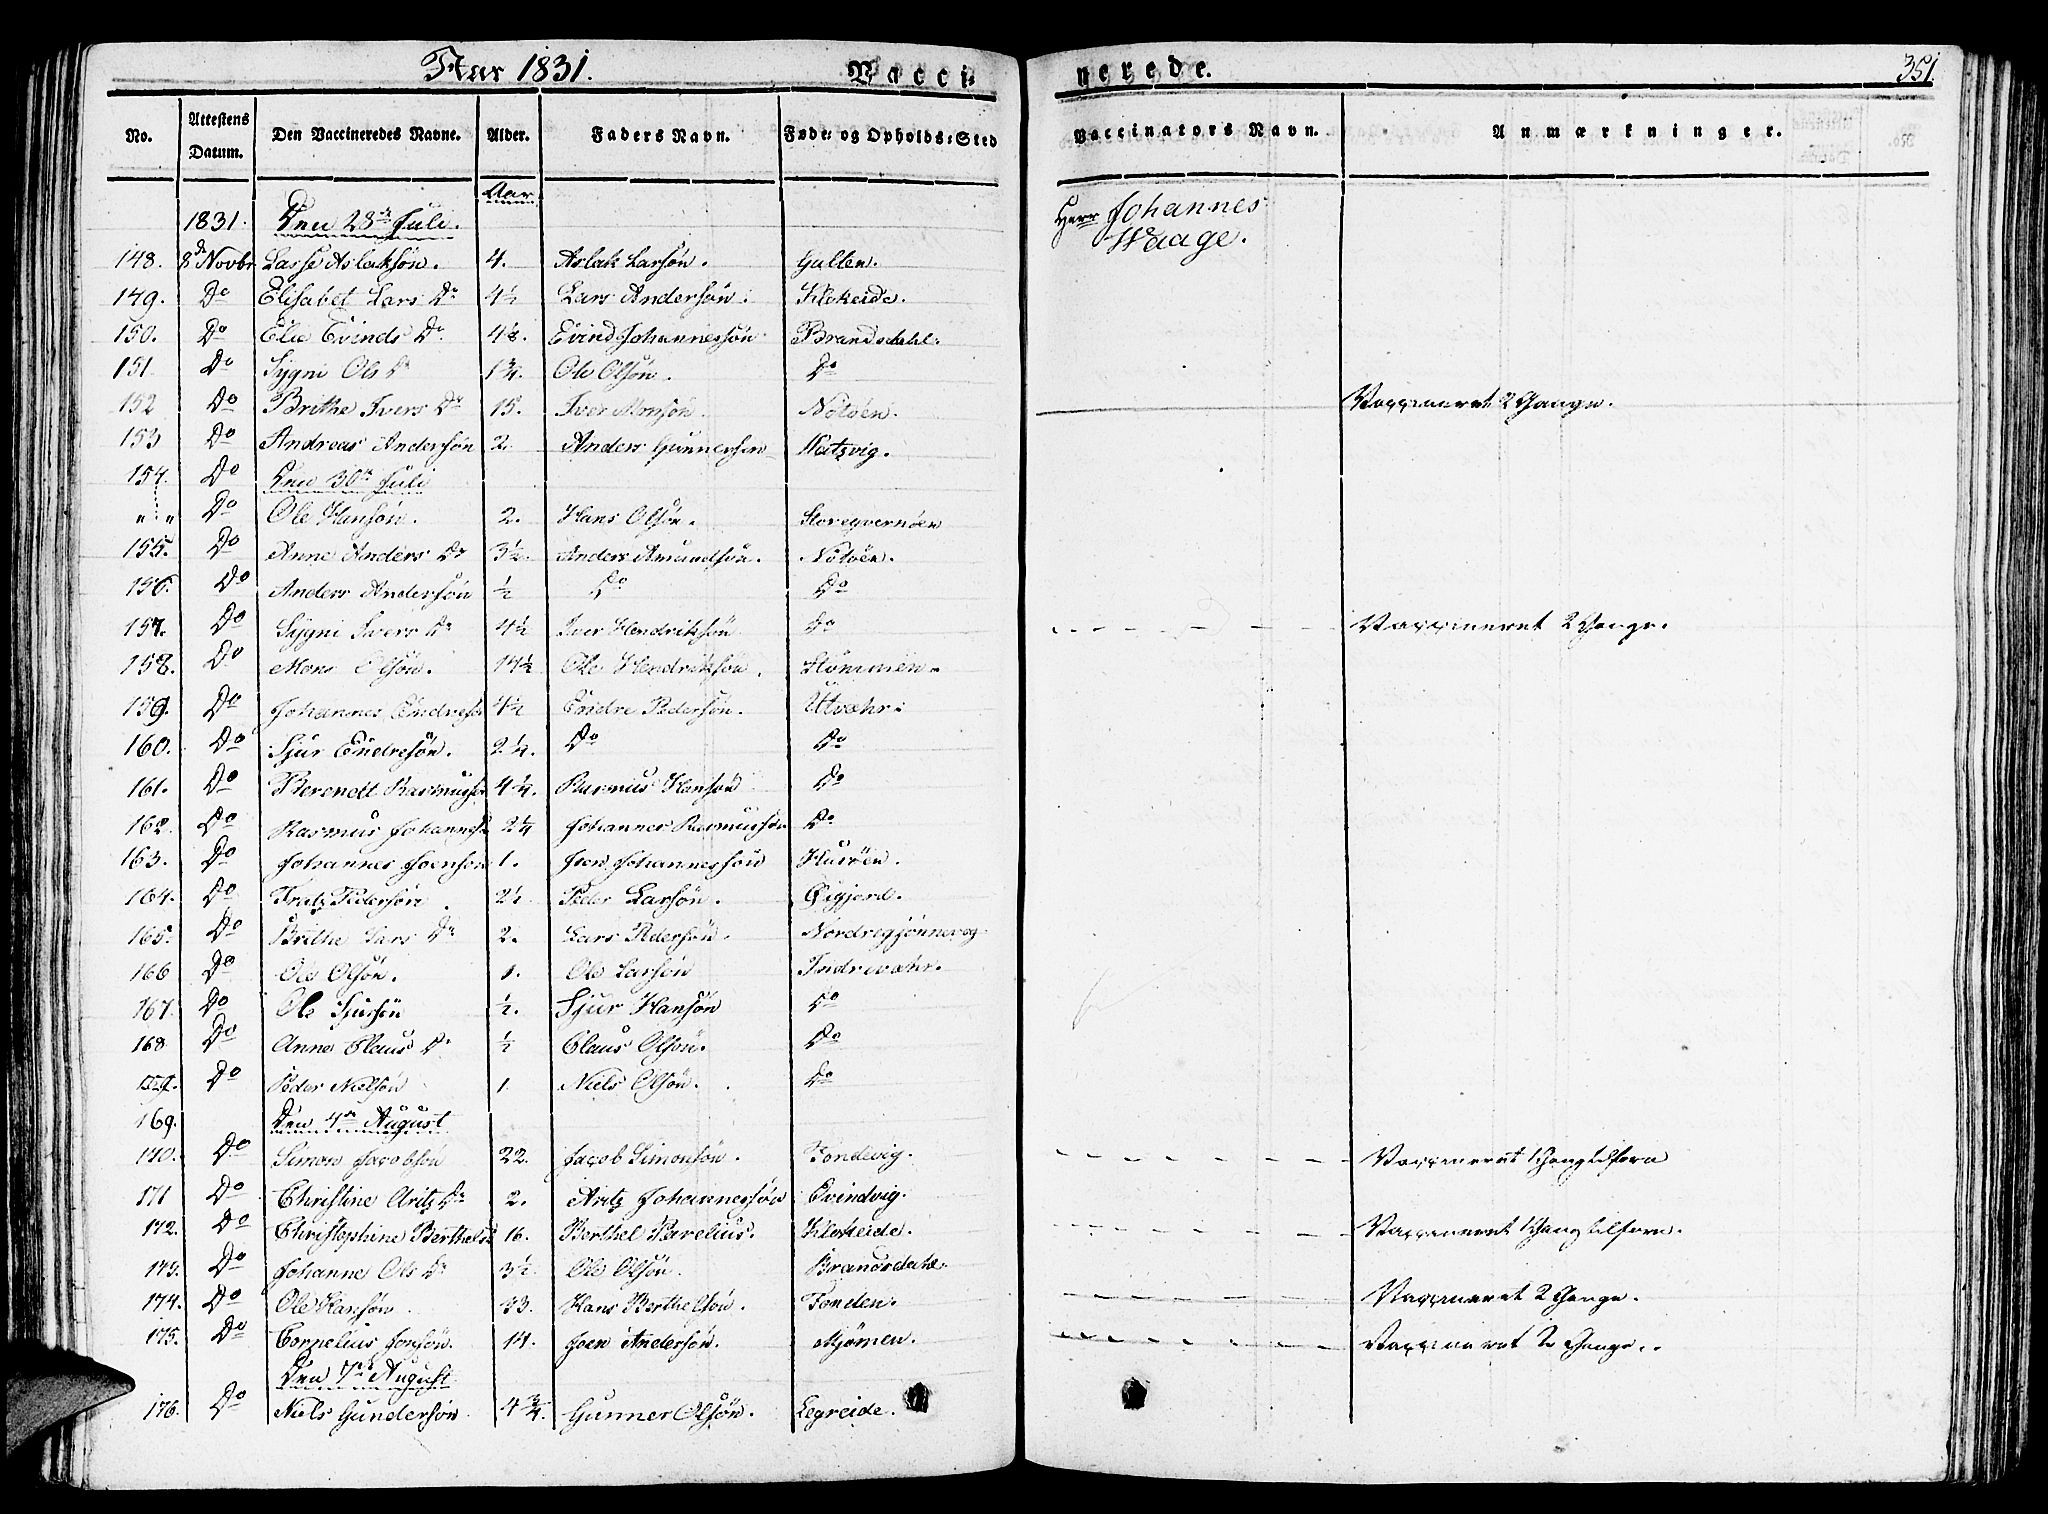 Aar 1831. Vacci-
nerede. 351.
No. Attestens Datum. Den Vaccineredes Navne. Alder. Faders Navn. Føde- og Opholds-Sted
Vaccinators Navn. Anmærkninger.
Aar
1831. Den 28de Juli. Herr Johannes
Waage.
148. 8de Novbr Lasse Aslaksøn. 4. Aslak Larsøn. Gulten.
149. Do Elisabet Lars Dr 4½ Lars Andersøn. Klekeide.
150. Do Elie Evinds Dr. Evind Johannessøn Brandsdahl.
151 Do Sygni Ols Dr 1¾. Ole Olsøn. Do
152 Do Brithe Ivers Dr 15. Iver Monsøn. Notøen. Vaccineret 2 Gange.
153 Do Andreas Andersøn 2. Anders Gunnersøn Natzvig.
154. Do Den 30te Juli
" " Do Ole Hansøn. 2. Hans Olsøn. Storegvernøen
155. Do Anne Anders Dr 3½. Anders Amundsøn. Notøen.
156. Do Anders Andersøn ½ Do Do
157. Do Sygni Ivers Dr 4½ Iver Hendriksøn Do Vaccineret 2 Gange.
158. Do Mons Olsøn. 14½ Ole Hendriksøn.
159. Do Johannes Endresø 4½ Endre Pedersøn. Utvæhr.
160. Do Sjur Endresøn. 2¼. Do Do
161. Do Berendt Rasmussø 4¼. Rasmus Hansøn Do
162. Do Rasmus Johannessø 2¼ Johannes Rasmussøn Do
163. Do Johannes Joensøn 1. Joen Johannessøn Husøen.
164. Do Fratz Pedersøn. 2½ Peder Larsøn. Øigjerd.
165. Do Brithe Lars Dr 2. Lars Pedersøn.
166 Do Ole Olsøn. 1. Ole Larsøn Indrevæhr.
167. Do Ole Sjursøn ½. Sjur Hansøn Do
168 Do Anne Claus Dr ½ Claus Olsøn. Do
Do Peder Nielsøn 1. Niels Olsøn. Do
169. Den 4de August
170. Do Simon Jacobsøn 22. Jacob Simonsøn. Tondevig. Vaccineret 1 Gang tilforn
171 Do Christine Aritz Dr 2. Aritz Johannessøn Evindvig.
172. Do Christophine Berthels 16. Berthel Parelius. Klekeide. Vaccineret 1 Gang tilforn.
173. Do Johanne Ols Dr 3½. Ole Olsøn. Brandsdahl.
174. Do Ole Hansøn. 13. Hans Berthelsøn. Tonden. Vaccineret 2 Gange.
175. Do Cornelius Jonsøn. 14. Joen Andersøn. Mjømen. Vaccineret 2 Gange.
Den 7de August.
176. Do Niels Gundersøn 4¾. Gunner Olsøn. Legreide.